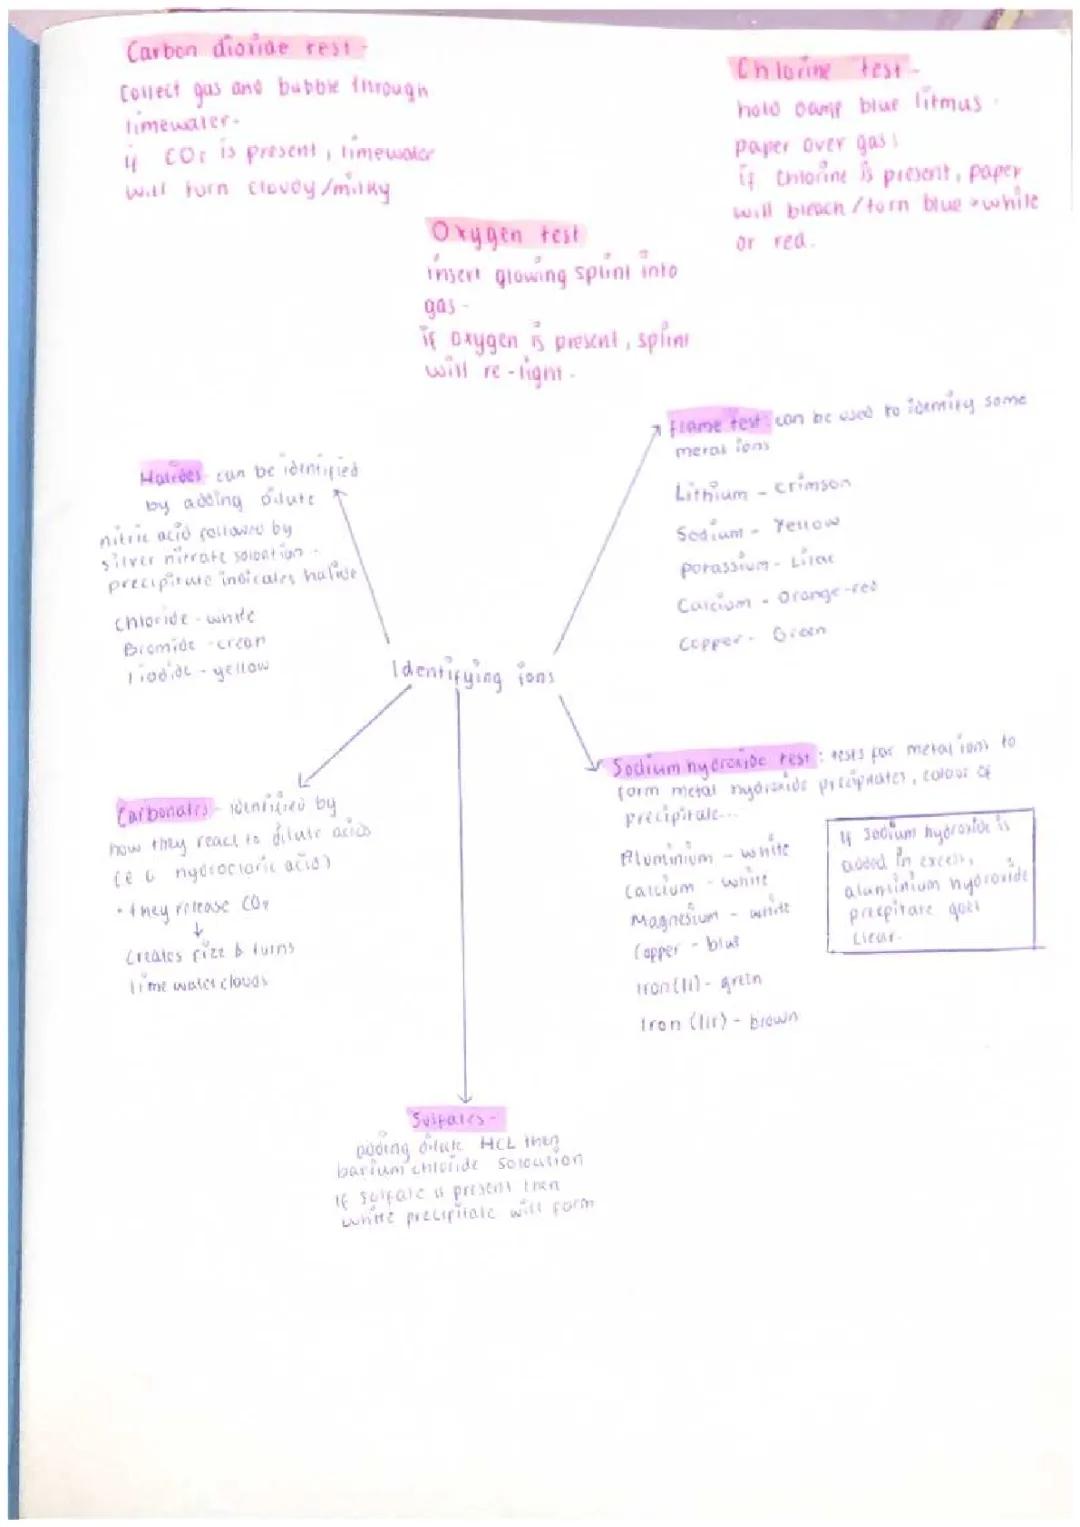 Carbon dioxide test -
Collect gas and bubble through
limewater.
if CO2 is present, limewater
will turn cloudy/milky
Chlorine test -
hold damp blue litmus
paper over gas:
if chlorine is present, paper
will bleach/turn blue → white
or red.
Oxygen test
insert glowing splint into
gas -
if oxygen is present, splint
will re-light.
Flame test: can be used to identify some
metal ions
Lithium - crimson
Sodium - Yellow
potassium - Lilac
Calcium - Orange-red
Copper - Green
Halides can be identified
by adding dilute
nitric acid followed by
silver nitrate solution -
precipitate indicates halide
chloride - white
Bromide - cream
Iodide - yellow
Identifying ions
Sodium hydroxide test: tests for metal ions to
form metal hydroxide precipitates, colour of
precipitate...
Aluminium - white
Calcium - white
Magnesium - white
Copper - blue
Iron (ii) - green
Iron (iir) - brown
If sodium hydroxide is
added in excess,
aluminium hydroxide
precpitate goes
clear.
Carbonates - identified by
how they react to dilute acids
(e.G hydrocloric acid)
• they release CO2
↓
Creates fizz & turns
lime water clouds
Sulfates -
adding dilute HCL then
barium chloride soloution
if sulfate is present then
white precipitate will form